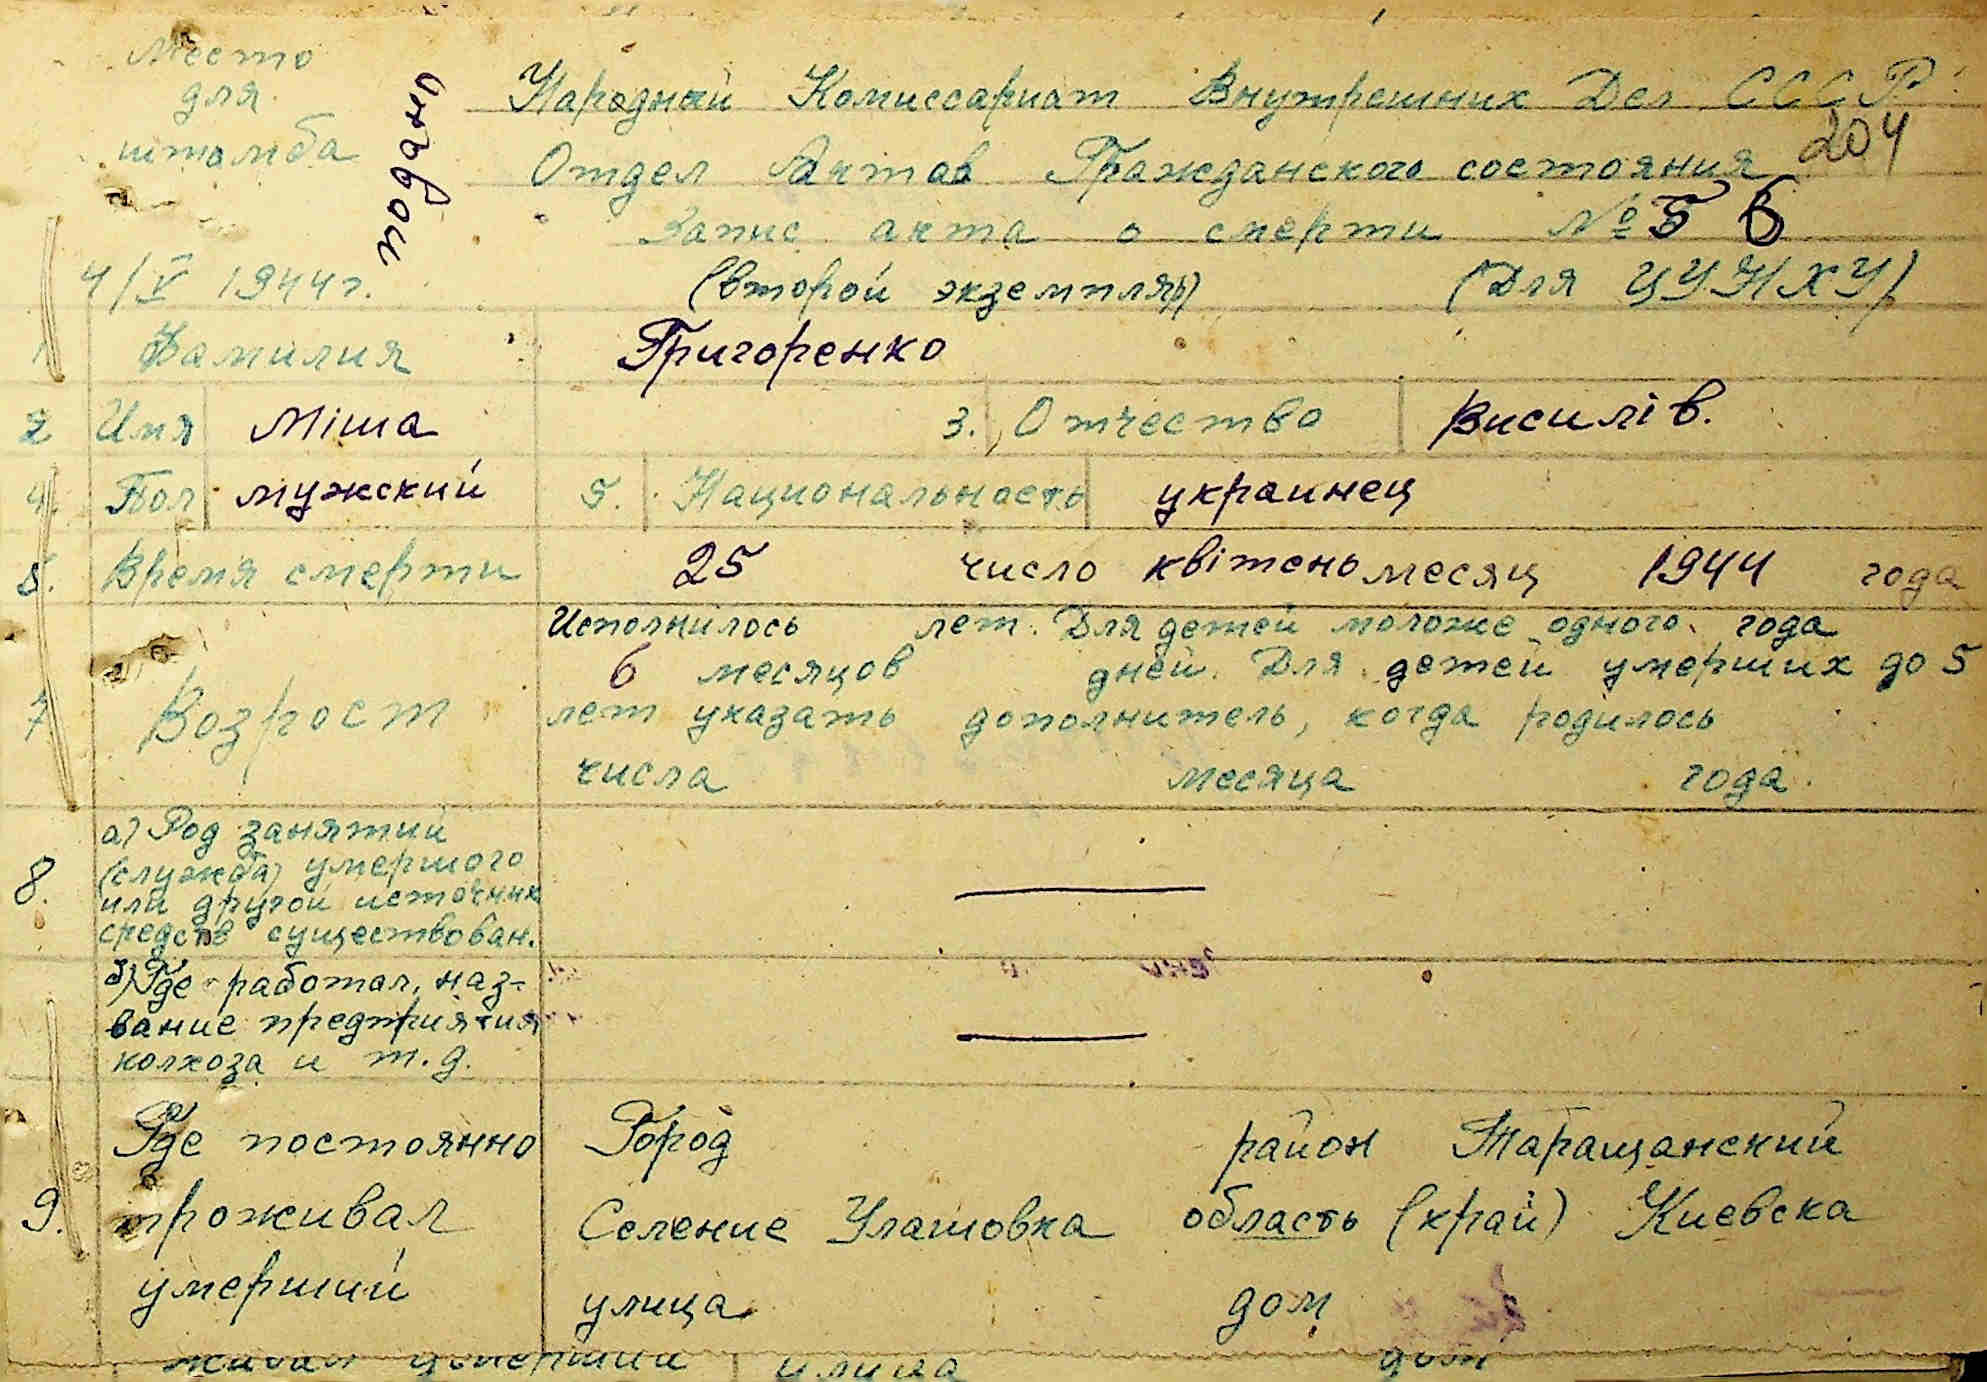 Место
для
штамба
подано
Народный Комиссариат Внутрешних Дел СССР
204
Отдел Актов Гражданского состояния
Запис акта о смерти № 56
4/V 1944г. (второй экземпляр) (Для ЦУНХУ)
1 Фамилия Григоренко
2 Имя Міша 3. Отчество Височлів.
4. Пол мужский 5. Национальность украинец
5. Время смерти 25 число квітень месяц 1944 года
Исполнилось лет. Для детей моложе одного года
6 месяцов дней. Для детей умерших до 5
7 Возрост лет указать дополнитель, когда родилось
числа месяца года.
а) Род занятий
8. (служба) умершого
или другой источник
средств существован.
б) Где работал, наз-
вание предприятия
колхоза и т.д.
Где постоянно Город район Таращанский
9. проживал Селение Улашовка область (край) Киевска
умерший улица дом
живал умерший улица дом